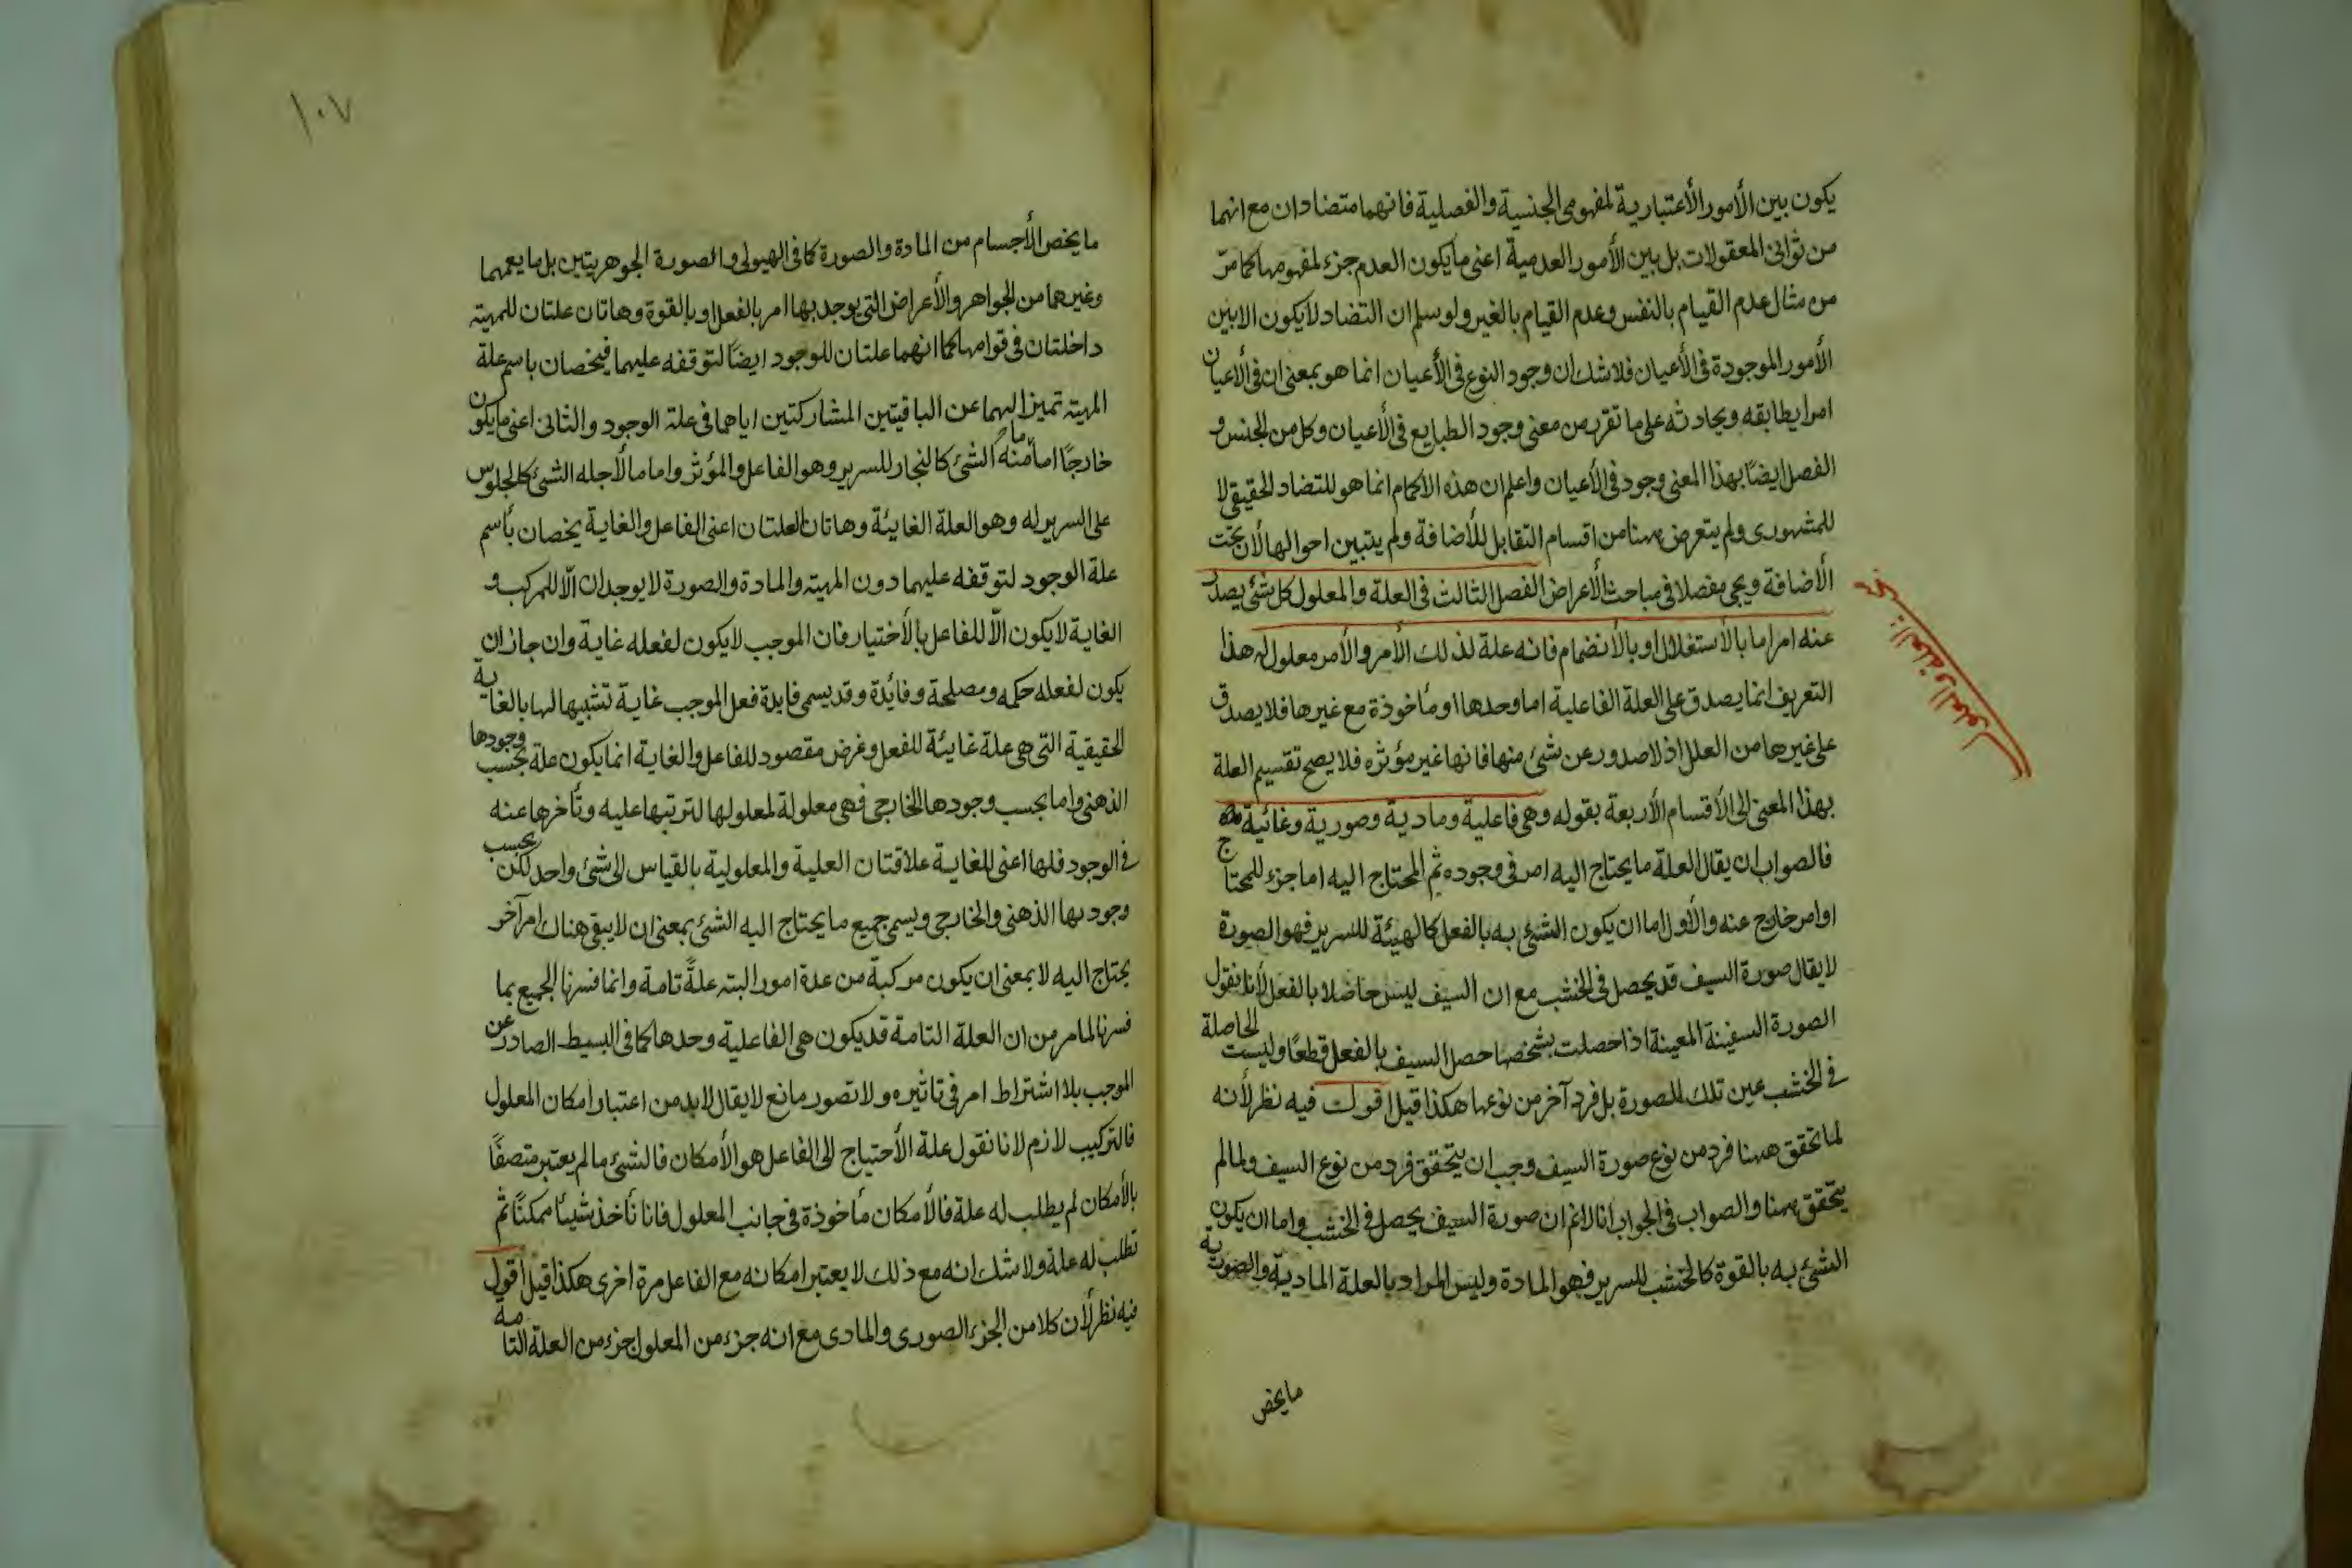 يكون بين الأمور الأعتبارية لمفهومى الجنسية والفصلية فانهما متضادان مع انهما
من ثوانى المعقولات بل بين الأمور العدمية اعنى ما يكون العدم جزء لمفهومها كما مرّ
من مثال عدم القيام بالنفس وعدم القيام بالغير ولو سلم ان التضاد لا يكون الا بين
الأمور الموجودة فى الأعيان فلا شك ان وجود النوع فى الأعيان انما هو بمعنى ان فى الأعيان
امرا يطابقه ويحاذيه على ما تقرر من معنى وجود الطبايع فى الأعيان وكل من الجنس و
الفصل ايضًا بهذا المعنى وجود فى الأعيان واعلم ان هذه الاحكام انما هو للتضاد الحقيقى لا
للمشهورى ولم يتعرض ههنا من اقسام التقابل للأضافة ولم يتبين احوالها لأن بحث
الأضافة ويجى مفصلا فى مباحث الأعراض الفصل الثالث فى العلة والمعلول كل شئ يصدر
عنه امر اما بالأستقلال او بالأنضمام فانه علة لذلك الأمر والأمر معلول له هذا
التعريف انما يصدق على العلة الفاعلية اما وحدها او مأخوذة مع غيرها فلا يصدق
على غيرها من العلل اذ لا صدور عن شئ منها فانها غير مؤثره فلا يصح تقسيم العلة
بهذا المعنى الى الأقسام الأربعة بقوله وهى فاعلية ومادية وصورية وغائية
فالصواب ان يقال العلة ما يحتاج اليه امر فى وجوده ثم المحتاج اليه اما جزء للمحتاج
او امر خارج عنه والأول اما ان يكون الشئ به بالفعل كالهيئة للسرير فهو الصورة
لا يقال صورة السيف قد يحصل فى الخشب مع ان السيف ليس حاصلا بالفعل لأنا نقول
الصورة السيفية المعينة اذا حصلت بشخصها حصل السيف بالفعل قطعًا وليست الحاصلة
فى الخشب عين تلك الصورة بل فرد آخر من نوعها هكذا قيل اقول فيه نظر لأنه
لما تحقق ههنا فرد من نوع صورة السيف وجب ان يتحقق فرد من نوع السيف ولما لم
يتحقق ههنا والصواب فى الجواب انا لا نم ان صورة السيف يحصل فى الخشب واما ان يكون
الشئ به بالقوة كالخشب للسرير فهو المادة وليس المراد بالعلة المادية والصورية
ما يخص
بحث العلة والمعلول
١٠٧
ما يخص الأجسام من المادة والصورة كما فى الهيولى والصورة الجوهريتين بل ما يعمهما
وغيرهما من الجواهر والأعراض التى يوجد بها امر بالفعل او بالقوة وهاتان علتان للمهية
داخلتان فى قوامها كما انهما علتان للوجود ايضًا لتوقفه عليهما فيخصان باسم علة
المهية تميزا لهما عن الباقيتين المشاركتين اياهما فى علة الوجود والثانى اعنى ما يكون
خارجًا اما ما منه الشئ كالنجار للسرير وهو الفاعل والمؤثر واما ما لأجله الشئ كالجلوس
على السرير له وهو العلة الغايئة وهاتان العلتان اعنى الفاعل والغاية يخصان بأسم
علة الوجود لتوقفه عليهما دون المهية والمادة والصورة لا يوجدان الّا للمركب و
الغاية لا يكون الّا للفاعل بالأختيار فان الموجب لا يكون لفعله غاية وان جاز ان
يكون لفعله حكمه ومصلحة وفائدة وقد يسمى فايدة فعل الموجب غاية تشبيها لها بالغاية
الحقيقية التى هى علة غايئة للفعل وغرض مقصود للفاعل والغاية انما يكون علة بحسب وجودها
الذهنى واما بحسب وجودها الخارجى فهى معلولة لمعلولها لترتبها عليه وتأخرها عنه
فى الوجود فلها اعنى للغاية علاقتان العلية والمعلولية بالقياس الى شئ واحد لكن بحسب
وجوديها الذهنى والخارجى ويسمى جميع ما يحتاج اليه الشئ بمعنى ان لا يبقى هناك امر آخر
يحتاج اليه لا بمعنى ان يكون مركبة من عدة امور البتة علةً تامة وانما فسرنا الجميع بما
فسرنا لما مر من ان العلة التامة قد يكون هى الفاعلية وحدها كما فى البسيط الصادر عن
الموجب بلا اشتراط امر فى تاثيره ولا تصور مانع لا يقال لا بد من اعتبار امكان المعلول
فالتركيب لازم لانا نقول علة الأحتياج الى الفاعل هو الأمكان فالشئ ما لم يعتبر متصفًا
بالأمكان لم يطلب له علة فالأمكان مأخوذة فى جانب المعلول فانا نأخذ شيئا ممكنًا ثم
نطلب له علة ولا شك انه مع ذلك لا يعتبر امكانه مع الفاعل مرة اخرى هكذا قيل اقول
فيه نظر لأن كلا من الجزء الصورى والمادى مع انه جزء من المعلول جزء من العلة التامة